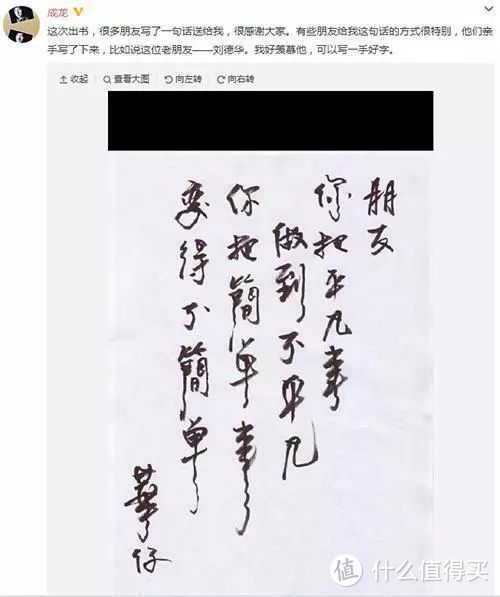 成龙
这次出书，很多朋友写了一句话送给我，很感谢大家。有些朋友给我这句话的方式很特别，他们亲
手写了下来，比如说这位老朋友——刘德华。我好羡慕他，可以写一手好字。
收起 查看大图 向左转 向右转
朋友
你把平凡事
做到不平凡
你把簡单事
变得不簡单
華仔
值 什么值得买